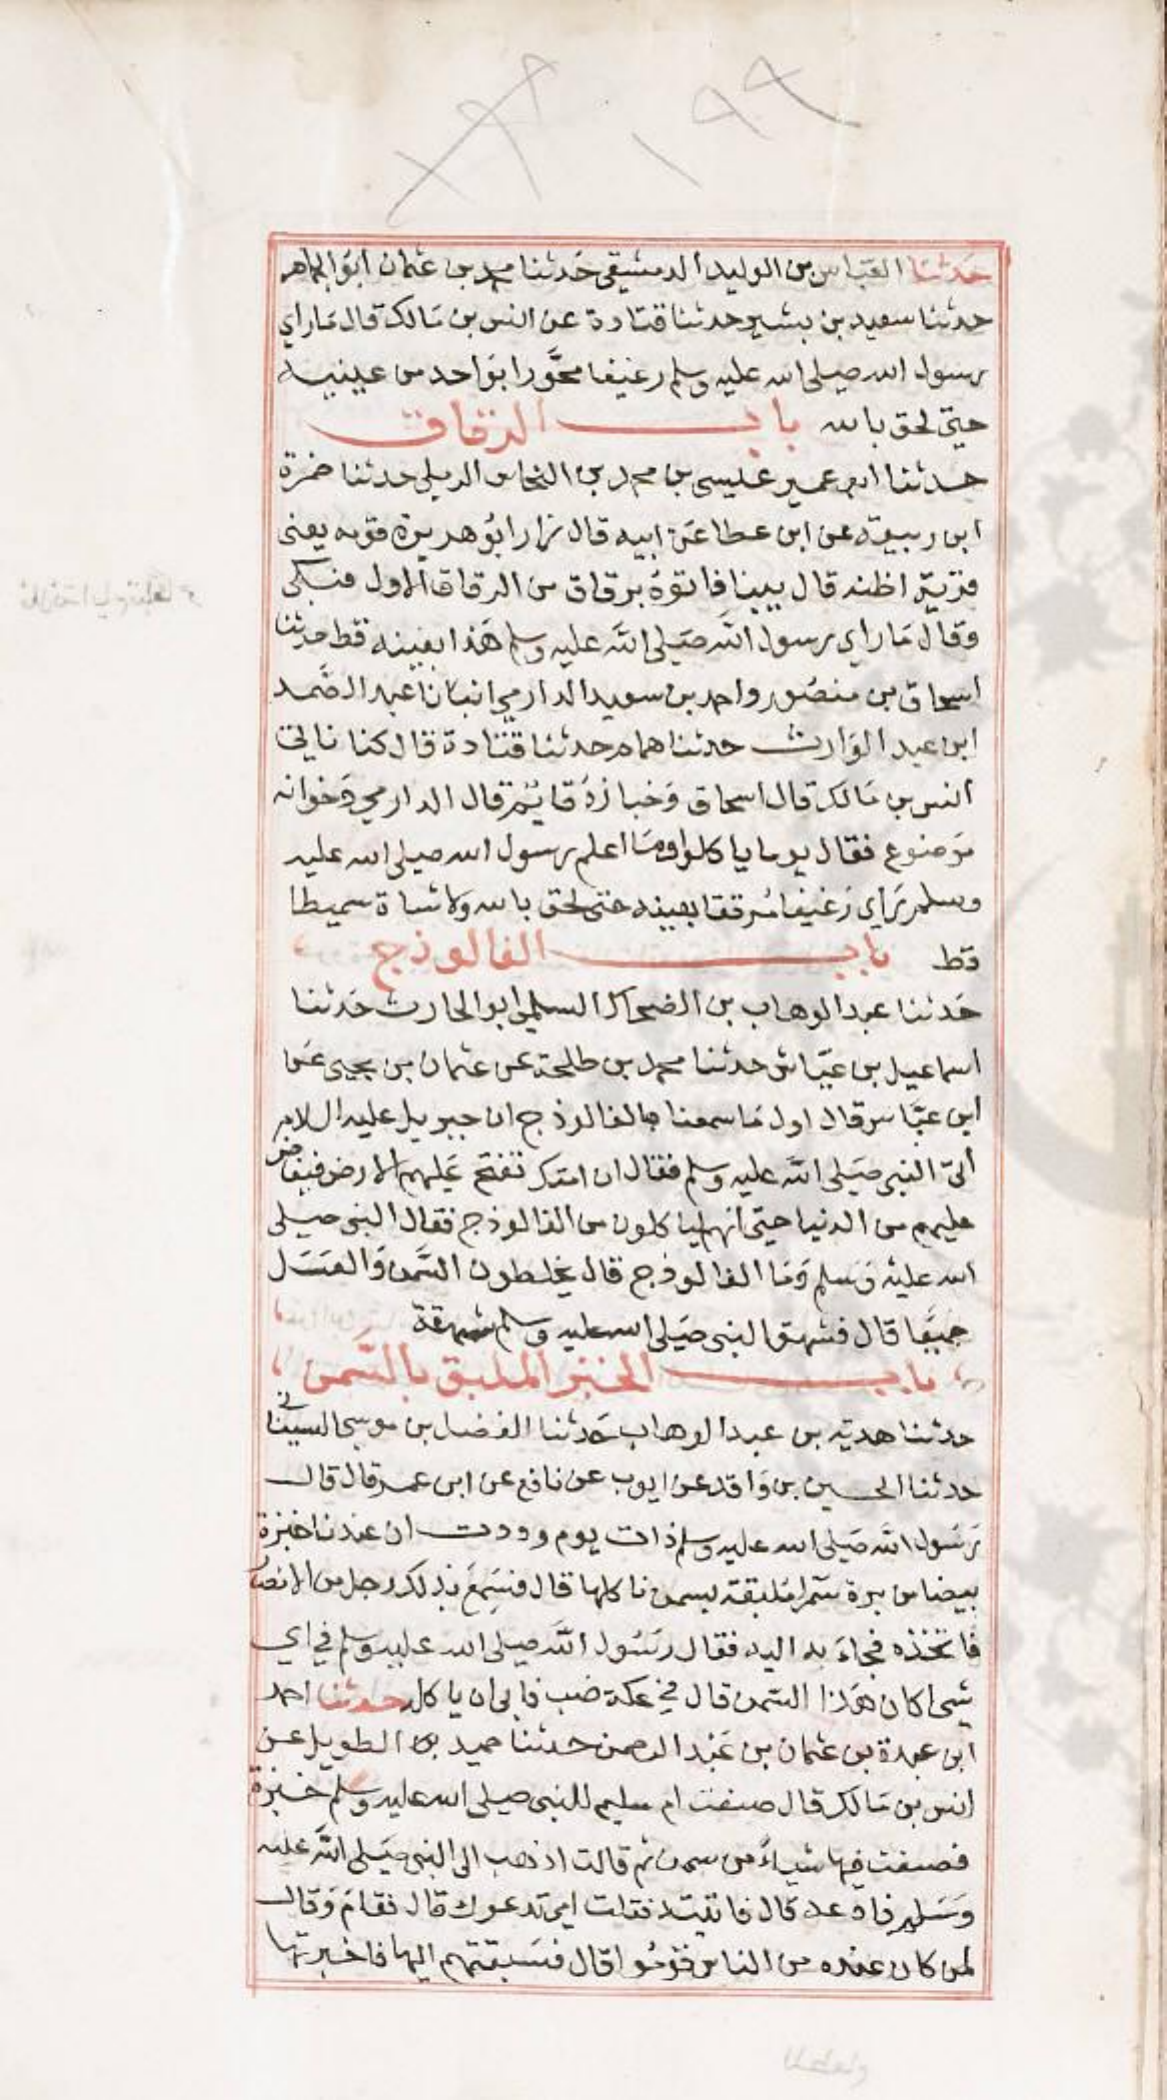 ١٩٩
حدثنا العباس بن الوليد الدمشقي حدثنا محمد بن عثمان ابو الجماهر
حدثنا سعيد بن بشير حدثنا قتادة عن انس بن مالك قال ماراي
رسول الله صلى الله عليه وسلم رغيفا محورا بواحد من عينيه
حتى لحق بالله باب الرقاق
حدثنا ابو عمير عيسى بن محمد بن النحاس الرملي حدثنا ضمرة
ابن ربيعة عن ابن عطا عن ابيه قال زار ابو هريرة قومه يعنى
قرية اظنه قال يبنا فاتوه برقاق من الرقاق الاول فبكى
وقال ماراي رسول الله صلى الله عليه وسلم هذا بعينه قط حدثنا
اسحاق بن منصور واحمد بن سعيد الدارمي انبانا عبد الصمد
ابن عبد الوارث حدثنا همام حدثنا قتادة قال كنا ناتي
انس بن مالك قال اسحاق وخبازه قايم قال الدارمي وخوانه
موضوع فقال يوما يا كلوا وما اعلم رسول الله صلى الله عليه
وسلم راي رغيفا مرققا بعينه حتى لحق بالله ولا شاة سميطا
قط باب الفالوذج
حدثنا عبد الوهاب بن الضحاك السلمي ابو الحارث حدثنا
اسماعيل بن عياش حدثنا محمد بن طلحة عن عثمان بن يحيى عن
ابن عباس قال اول ما سمعنا بالفالوذج ان جبريل عليه السلام
اتى النبي صلى الله عليه وسلم فقال ان امتك تفتح عليهم الارض فيفاض
عليهم من الدنيا حتى انهم ليا كلون من الفالوذج فقال النبي صلى
الله عليه وسلم وما الفالوذج قال يخلطون السمن والعسل
جميعا قال فشهق النبي صلى الله عليه وسلم شهقة
باب الخبز الملبق بالسمن
حدثنا هدية بن عبد الوهاب حدثنا الفضل بن موسى السينانى
حدثنا الحسين بن واقد عن ايوب عن نافع عن ابن عمر قال قال
رسول الله صلى الله عليه وسلم ذات يوم وددت ان عندنا خبزة
بيضا من برة سمرا ملبقة بسمن ناكلها قال فسمع بذلك رجل من الانصار
فاتخذه فجاء به اليه فقال رسول الله صلى الله عليه وسلم في اي
شي كان هذا السمن قال في عكة ضب فابى ان يا كله حدثنا احمد
ابن عبدة بن عثمان بن عبد الرحمن حدثنا حميد الطويل عن
انس بن مالك قال صنعت ام سليم للنبي صلى الله عليه وسلم خبزة
فصنعت فيها شياء من سمن ثم قالت اذهب الى النبي صلى الله عليه
وسلم فادعه قال فاتيته فقلت امي تدعوك قال فقام وقال
لمن كان عنده من الناس قوموا قال فسبقتهم اليها فاخبرتها